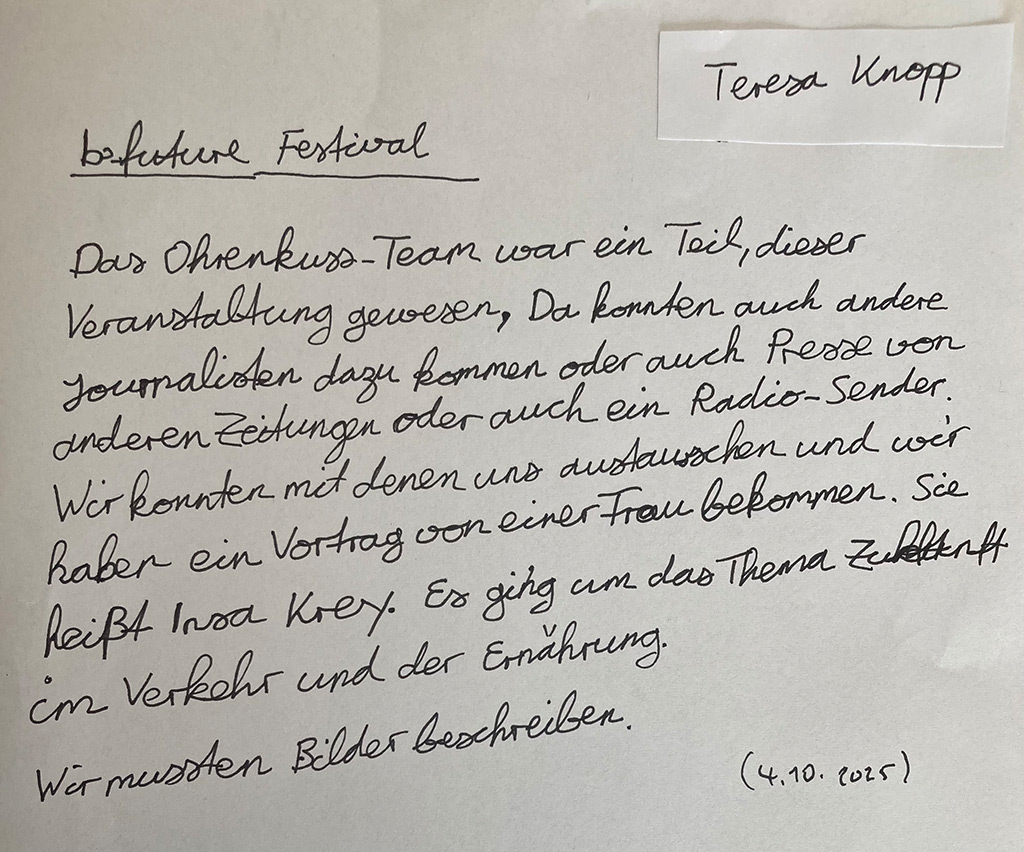 Teresa Knopp
b°future Festival
Das Ohrenkuss-Team war ein Teil, dieser
Veranstaltung gewesen, Da konnten auch andere
Journalisten dazu kommen oder auch Presse von
anderen Zeitungen oder auch ein Radio-Sender.
Wir konnten mit denen uns austauschen und wir
haben ein Vortrag von einer Frau bekommen. Sie
heißt Insa Krey. Es ging um das Thema Zukunft
im Verkehr und der Ernährung.
Wir mussten Bilder beschreiben.
(4.10.2025)